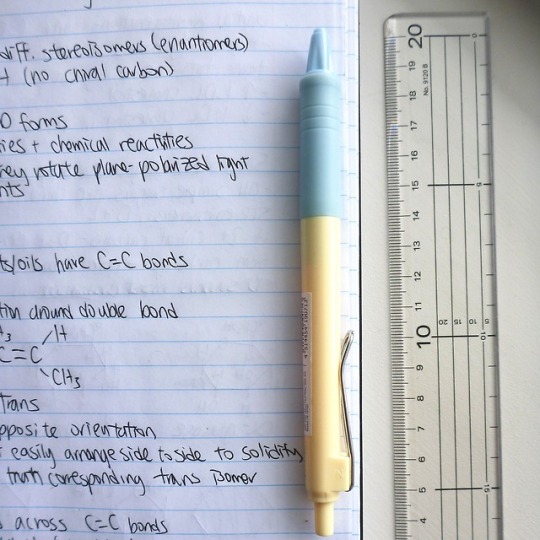 diff. stereoisomers (enantiomers)
(no chiral carbon)
D forms
ies + chemical reactivities
hey rotate plane-polarized light
nts
ts/oils have C=C bonds
tion around double bond
H
C=C
CH3
trans
pposite orientation
easily arrange side to side to solidify
than corresponding trans isomer
across C=C bonds
20
19
No. 9120 B
18
17
16
15
5
14
13
12
11
20 15 10 5
10
10
9
8
7
6
5
15
4